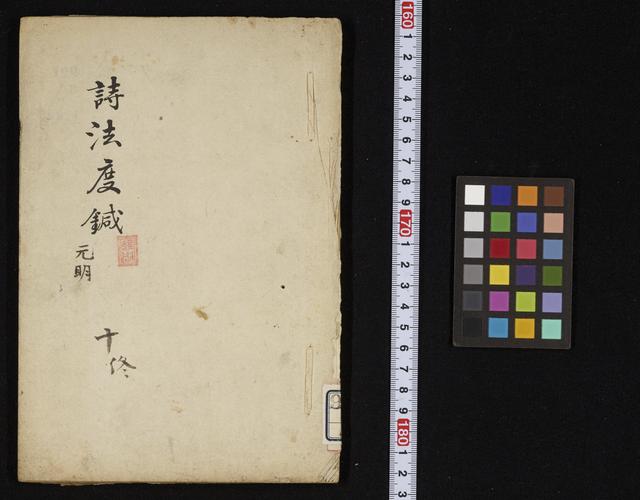 詩法度鍼
元明
十終
160
1
2
3
4
5
6
7
8
9
170
1
2
3
4
5
6
7
8
9
180
1
2
3